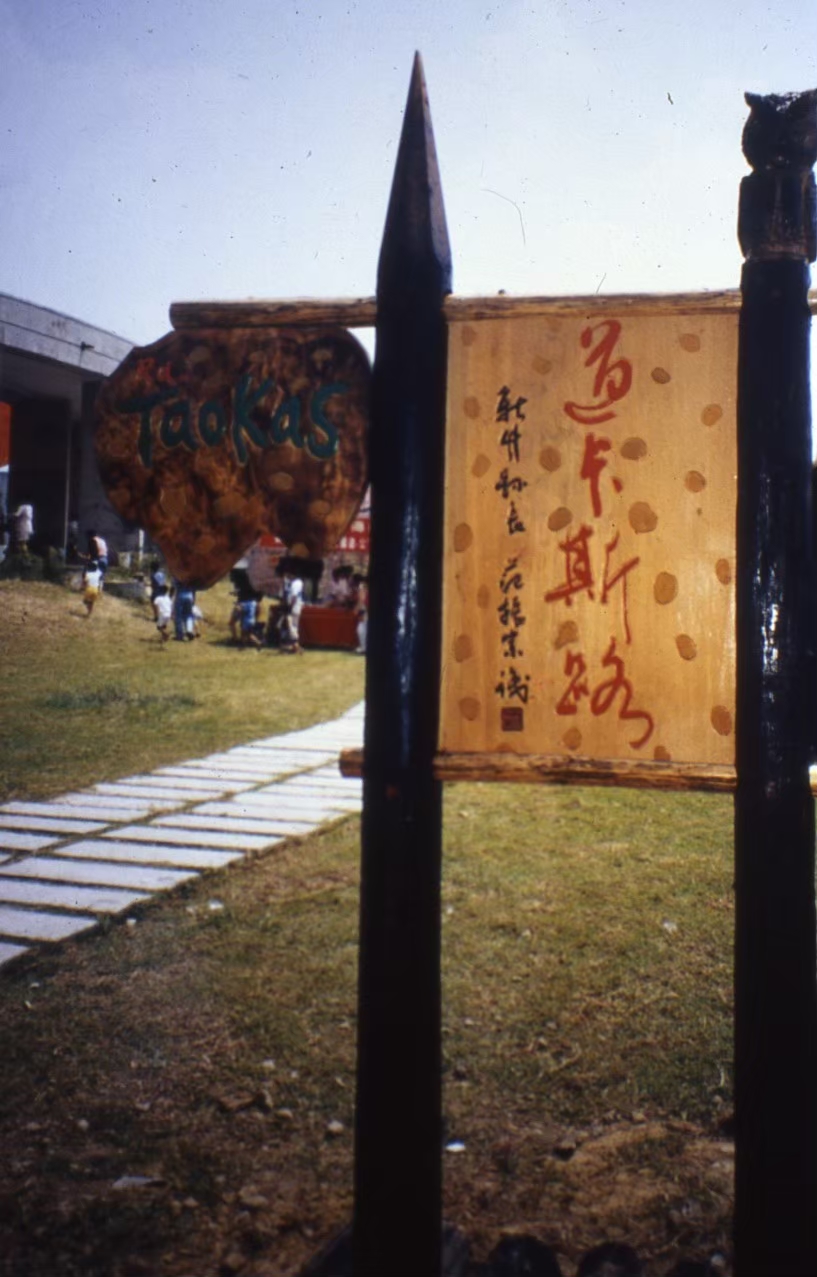 TaoKas
道卡斯路
新竹縣長 范振宗 識